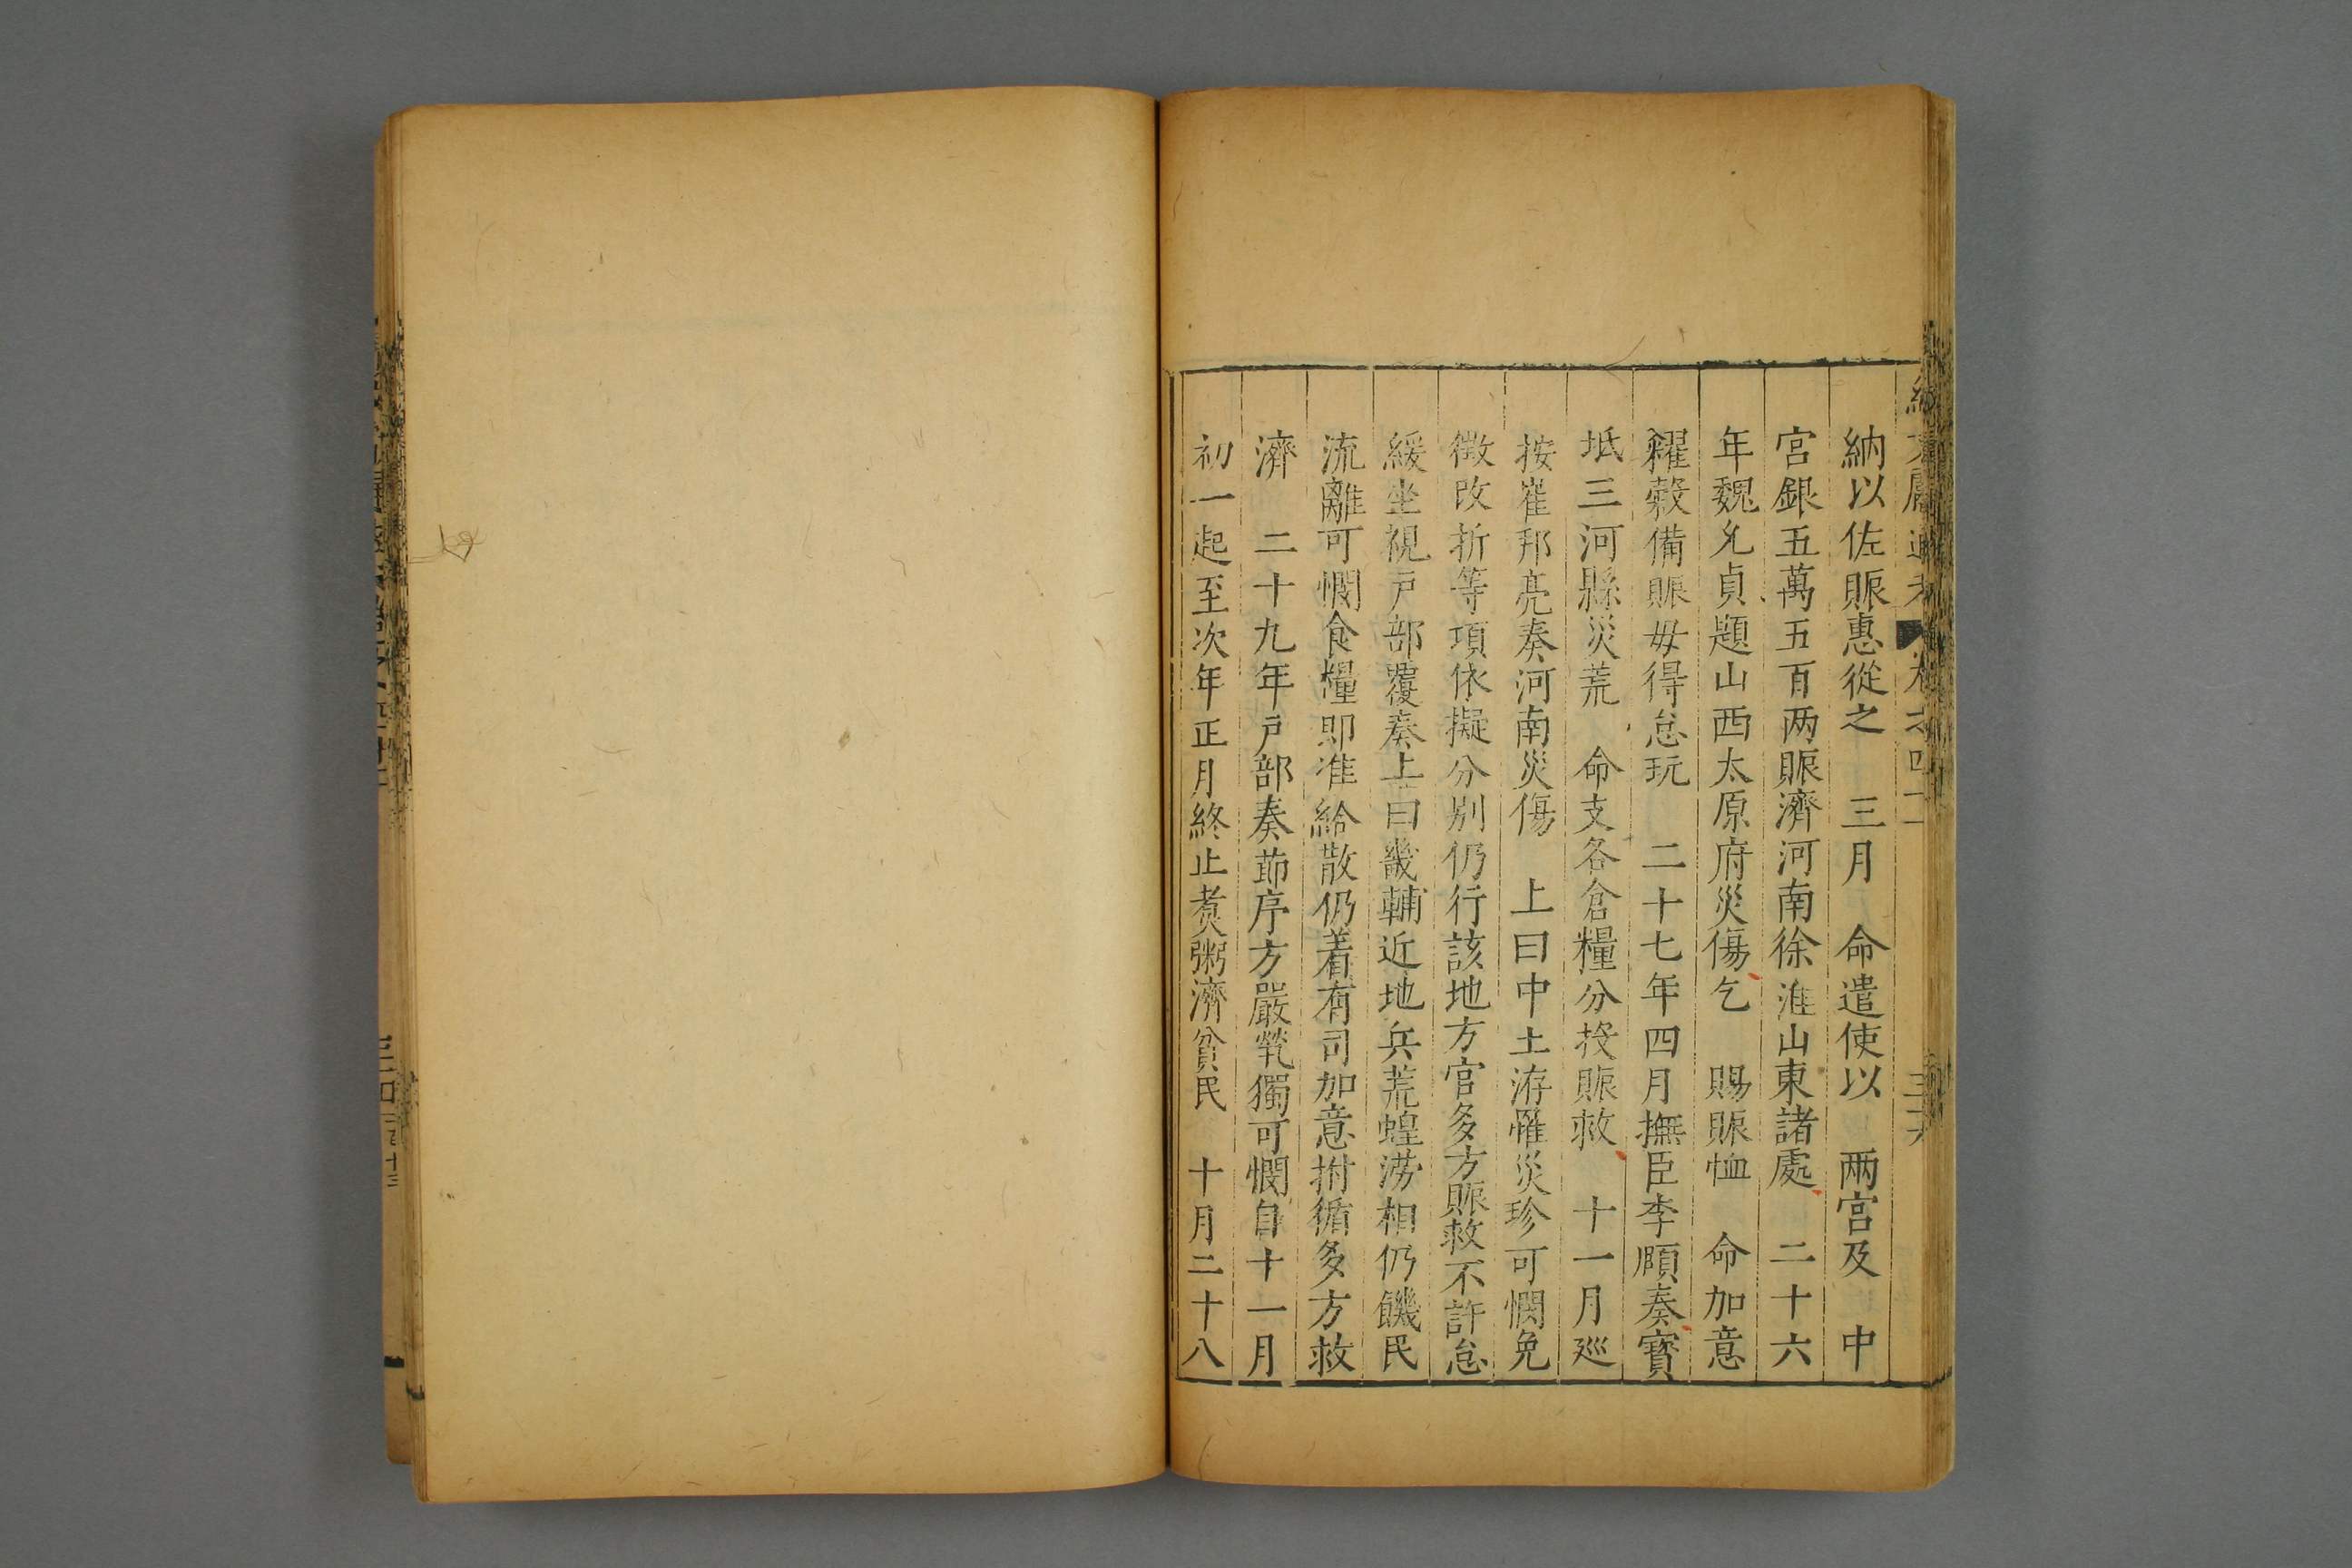 納以佐賑惠從之　三月　命遣使以　兩宮及　中
宮銀五萬五百两賑濟河南徐淮山東諸處　二十六
年魏允貞題山西太原府災傷乞　賜賑恤　命加意
糴穀備賑毋得怠玩　二十七年四月撫臣李頤奏寳
坻三河縣災荒　命支各倉糧分投賑救　十一月廵
按崔邦亮奏河南災傷　上曰中土洊罹災殄可憫免
徵改折等項依擬分别仍行該地方官多方賑救不許怠
緩坐視戸部覆奏上曰畿輔近地兵荒蝗澇相仍饑民
流離可憫食糧即准給散仍着有司加意拊循多方救
濟　二十九年戸部奏莭序方嚴煢獨可憫自十一月
初一起至次年正月終止煮粥濟貧民　十月二十八